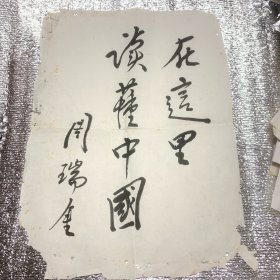 在這里
读懂中國
周瑞金